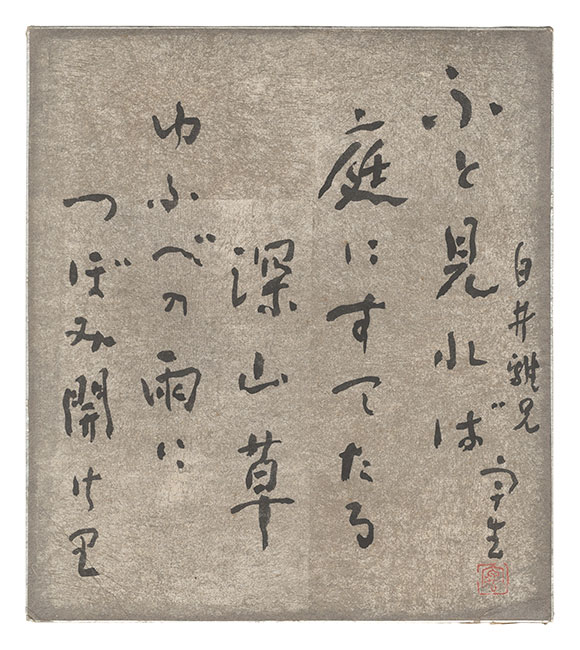 白井雅兄
ふと見れば
庭にすてたる
深山草
ゆふべの雨に
つぼみ開け里